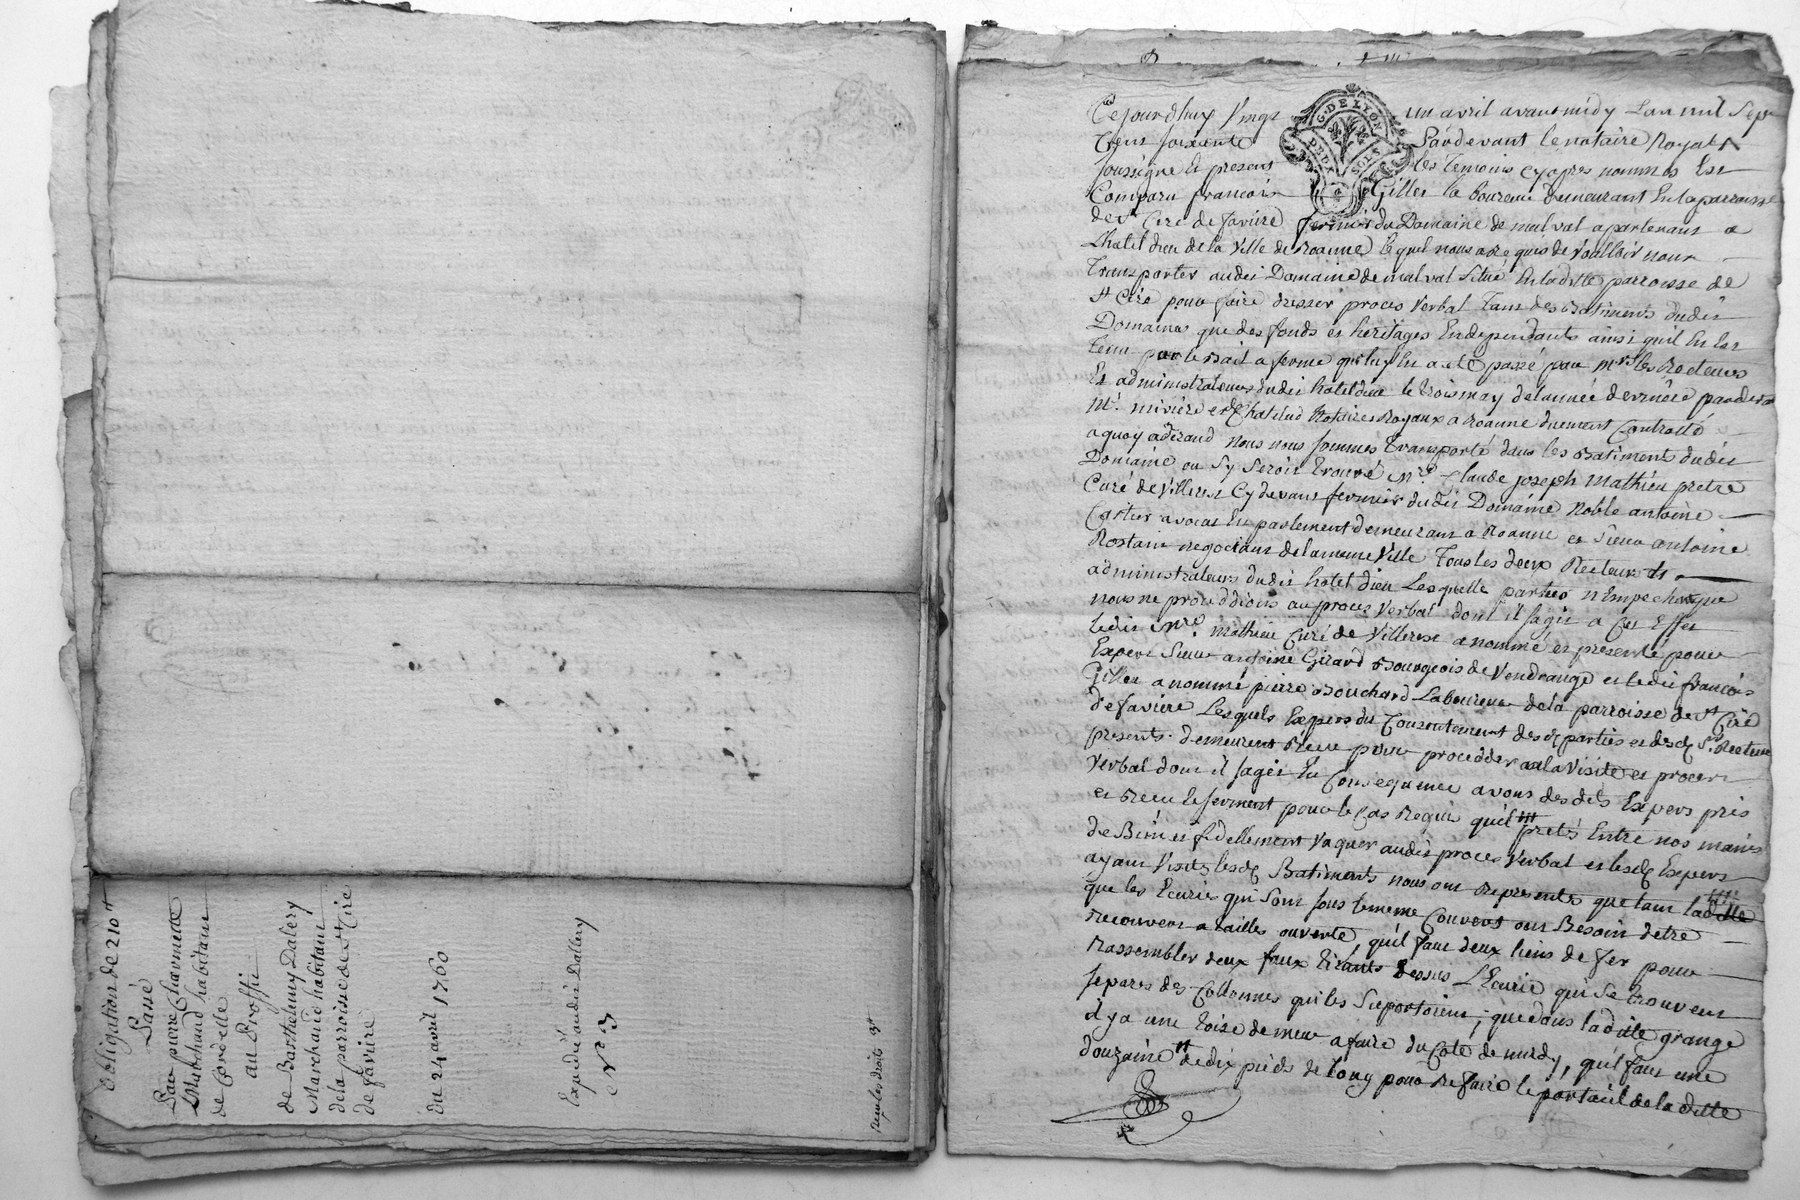 Obligation de 210 ₶
Passé
Par pierre Chavrnette
Marchand habitant
de Cordelle
au Proffit
de Barthelemy Dalery
Marchand habitant
de la parroisse de St Cire
de favière
du 24 avril 1760
Expédié audit Dallery
N° 3
G. DE LYON
DEUX SOLS
Cejourdhuy Vingt un avril avant midy Lan mil Sept
Cent soixante Pardevant le notaire Royal
soussigné Et present les temoins cy apres nommés Est
Comparu francois Gilles laboureur demeurant En la parroisse
de St Cire de favière fermier du Domaine de malval apartenant a
Lhotel dieu de la Ville de Roanne lequel nous a requis de Voulloir nous
Transporter audit Domaine de malval Situé En la ditte parroisse de
St Cire pour faire dresser procès Verbal tant des Batiments dudit
Domaine que des fonds et heritages En dependants ainsi quil En Est
tenu par le Bail a ferme qui luy En a eté passé par mrs les Recteurs
Et administrateurs dudit hotel dieu le trois may de lannée derniere pardevant
Me. mivière et Chatelud Notaires Royaux a Roanne duement Controllé
a quoy aderand nous nous sommes transporté dans les Batiments dudit
Domaine ou Sy Seroit trouvé Mre. Claude joseph Mathieu pretre
Curé de Villerest Cy devant fermier dudit Domaine Noble antoine
Cartier avocat En parlement demeurant a Roanne et Sieur antoine
Rostain negociant de la meme Ville tous les deux Recteurs et
administrateurs dudit hotel dieu Lesquelle parties n'Empechant que
nous ne proceddions au proces Verbal dont il sagit a Cet Effet
ledit Mre. Mathieu Curé de Villerest a nommé et presenté pour
Expert Sieur antoine Girard Bourgeois de Vendrange et ledit francois
Gilles a nommé pierre Bouchard Laboureur de la parroisse de St Cire
de favière Lesquels Experts du Consentement desd parties et desd Srs Recteurs
presents demeurent Recu pour procedder a la Visite et proces
Verbal dont il sagit En Consequence avons des dts Experts pris
et Recu le serment pour le Cas Requis quil pretés Entre nos mains
de Bien et fidellement Vaquer audit proces Verbal et lesd Experts
ayant Visité lesd Batiments nous ont representé que tant la ditte
que les Ecuries qui sont sous le meme Couvert ont Besoin detre
recouvert a tailles ouverte, quil faut deux liens de fer pour
Rassembler deux faux tirants dessus L'Ecurie qui se trouvent
separes des Collonnes qui les Suportoient, que dans la ditte grange
il y a une toise de mur a faire du Coté de midy, quil faut une
douzaine de dix pieds de long pour Refaire le portail de la ditte